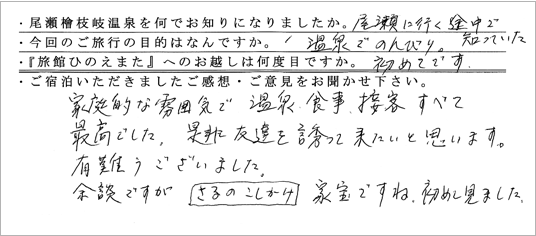 ・尾瀬檜枝岐温泉を何でお知りになりましたか。尾瀬に行く途中で
知っていた
・今回のご旅行の目的はなんですか。 温泉でのんびり。
・『旅館ひのえまた』へのお越しは何度目ですか。 初めてです。
・ご宿泊いただきましたご感想・ご意見をお聞かせ下さい。
家庭的な雰囲気で 温泉、食事、接客 すべて
最高でした。 是非 友達を誘って来たいと思います。
有難うございました。
余談ですが さるのこしかけ 家宝ですね、初めて見ました。